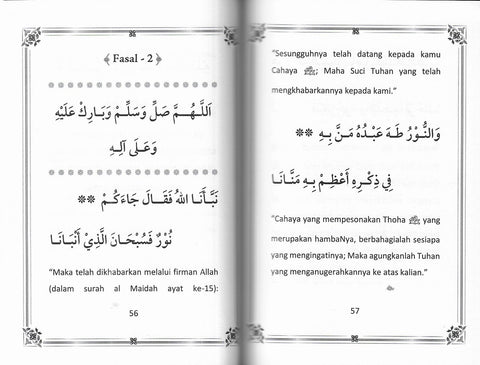 Fasal - 2
اَللّٰهُمَّ صَلِّ وَسَلِّمْ وَبَارِكْ عَلَيْهِ
وَعَلَى آلِهِ
نَبَّأَنَا اللهُ فَقَالَ جَاءَكُمْ **
نُوْرٌ فَسُبْحَانَ الَّذِيْ أَنْبَانَا
"Maka telah dikhabarkan melalui firman Allah
(dalam surah al Maidah ayat ke-15):
56
"Sesungguhnya telah datang kepada kamu
Cahaya ﷺ; Maha Suci Tuhan yang telah
mengkhabarkannya kepada kami."
وَالنُّوْرُ طٰهَ عَبْدُهُ مَنَّ بِهِ **
فِي ذِكْرِهِ أَعْظِمْ بِهِ مَنَّانَا
"Cahaya yang mempesonakan Thoha ﷺ yang
merupakan hambaNya, berbahagialah sesiapa
yang mengingatinya; Maka agungkanlah Tuhan
yang menganugerahkannya ke atas kalian."
57